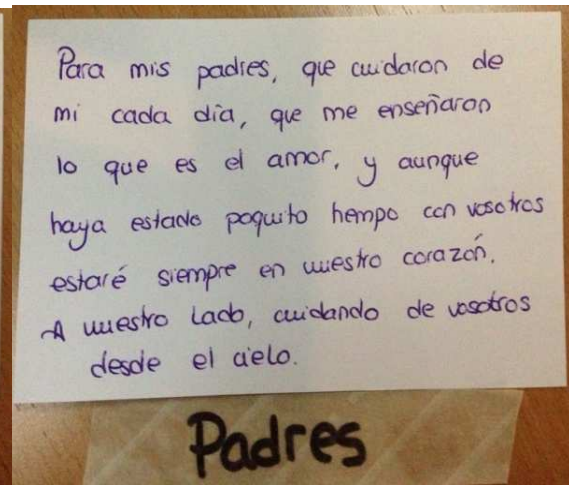 Para mis padres, que cuidaron de
mi cada día, que me enseñaron
lo que es el amor, y aunque
haya estado poquito tiempo con vosotros
estaré siempre en vuestro corazón.
A vuestro lado, cuidando de vosotros
desde el cielo.
Padres